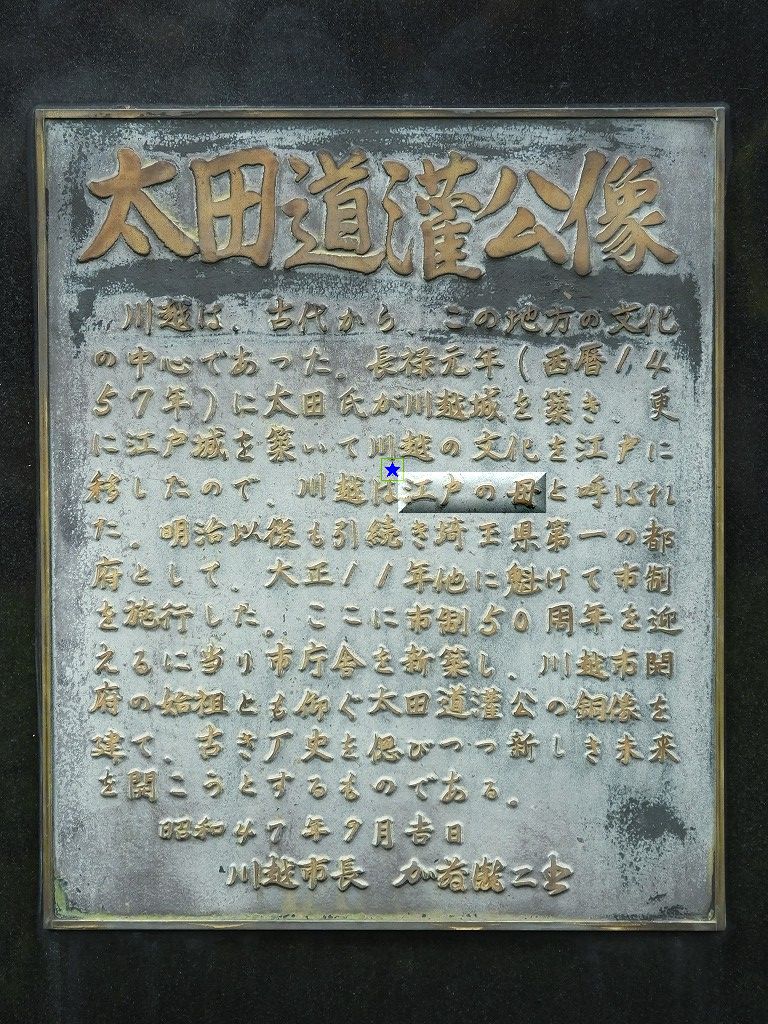 太田道灌公像
川越は、古代から、この地方の文化
の中心であった。長禄元年(西暦14
57年)に太田氏が川越城を築き、更
に江戸城を築いて川越の文化を江戸に
移したので、川越は江戸の母と呼ばれ
た。明治以後も引続き埼玉県第一の都
府として、大正11年他に魁けて市制
を施行した。ここに市制50周年を迎
えるに当り市庁舎を新築し、川越市開
府の始祖とも仰ぐ太田道灌公の銅像を
建て、古き厂史を偲びつつ新しき未来
を開こうとするものである。
昭和47年9月吉日
川越市長 加藤瀧二